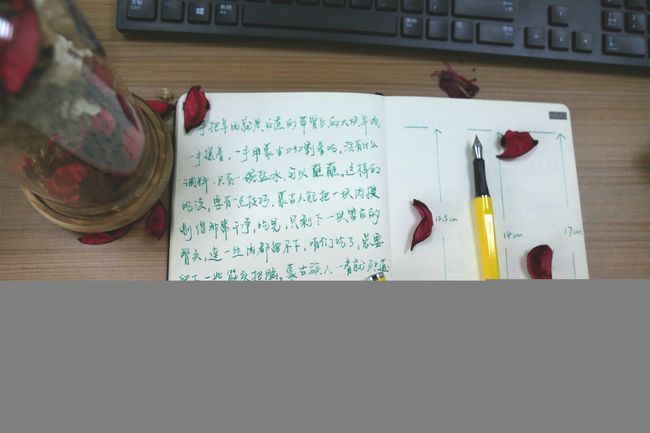 手把羊肉就是白煮的带骨头的大块羊肉,
一手攥着,一手用蒙古刀切割着吃,没有什么
调料,只有一碗盐水,可以蘸蘸。这样的
吃法,要有一点技巧,蒙古人能把一块肉搜
剔得非常干净,吃完,只剩下一块雪白的
骨头,连一丝肉都留不下,咱们吃了,总要
留下一些筋头把脑。蒙古族人一看就知道
12.5cm
14cm
17cm